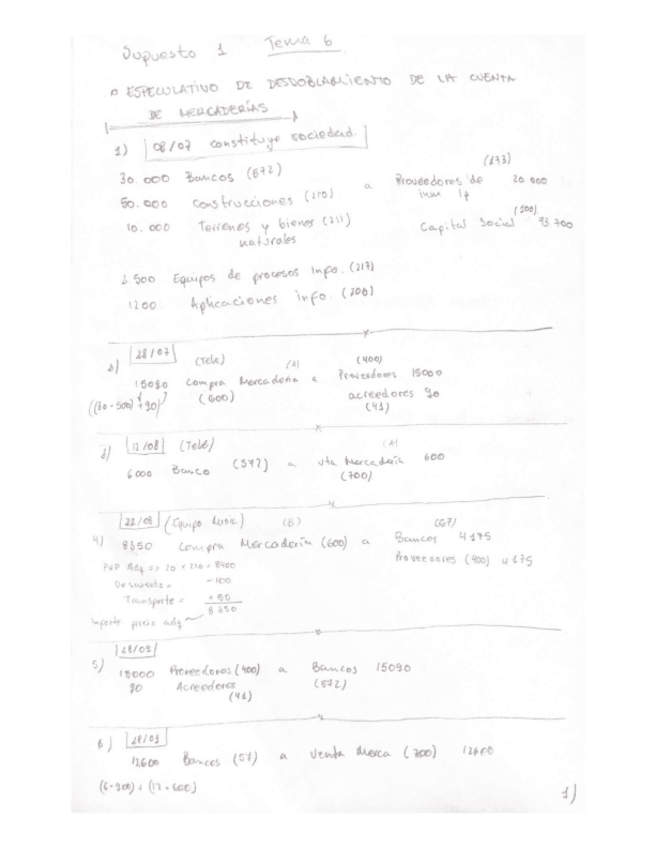 Supuesto 1 Tema 6
ESPECULATIVO DE DESDOBLAMIENTO DE LA CUENTA
DE MERCADERÍAS
1) 08/07 constituye sociedad.
(173)
30.000 Bancos (572) a Proveedores de 20.000
inm lp
50.000 Construcciones (210) (100)
10.000 Terrenos y bienes (211) Capital Social 73 700
naturales
2 500 Equipos de procesos Info. (217)
1200 Aplicaciones info. (206)
28/07 (Tele) (A) (400)
15090 Compra Mercadería a Proveedores 15000
((30·500)+90) (600) acreedores 90
(41)
3) 12/08 (Tele) (A)
6000 Banco (572) a vta Mercadería 600
(700)
22/08 (Equipo Music) (B) (57)
4) 8350 Compra Mercadería (600) a Bancos 4175
Proveedores (400) 4175
PVP Adq => 8400
Descuento = -100
Transporte = +50
8350
Importe precio adq
28/09
5) 15000 Proveedores (400) a Bancos 15090
90 Acreedores (572)
(41)
6) 28/09
12600 Bancos (57) a Venta Merca (700) 12600
(6·900) + (12·600)
1)